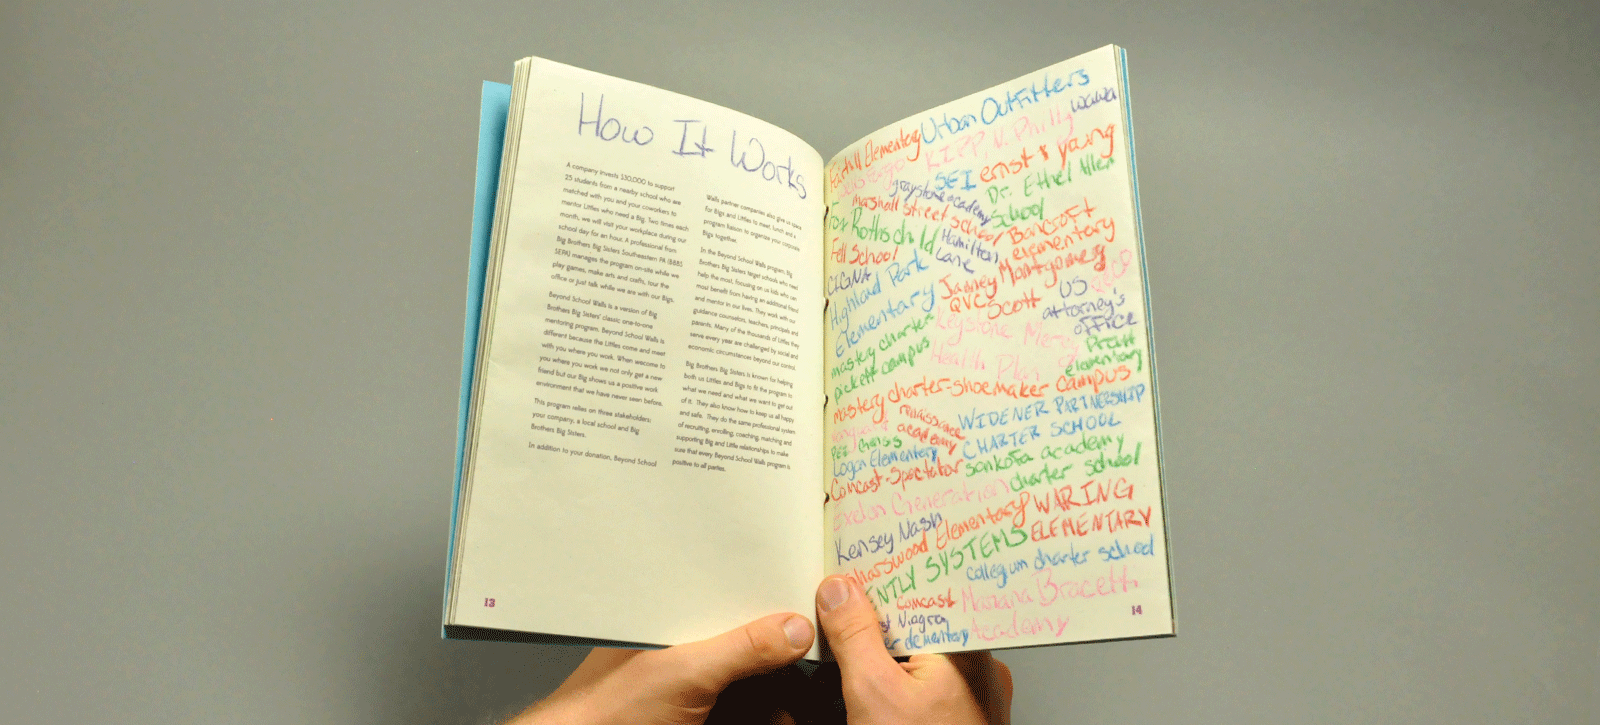 How It Works
A company invests $30,000 to support
25 students from a nearby school who are
matched with you and your coworkers to
mentor Littles who need a Big. Two times each
month, we will visit your workplace during our
school day for an hour. A professional from
Big Brothers Big Sisters Southeastern PA (BBBS
SEPA) manages the program on-site while we
play games, make arts and crafts, tour the
office or just talk while we are with our Bigs.
Beyond School Walls is a version of Big
Brothers Big Sisters' classic one-to-one
mentoring program. Beyond School Walls is
different because the Littles come and meet
with you where you work. When welcome to
you where you work we not only get a new
friend but our Big shows us a positive work
environment that we have never seen before.
This program relies on three stakeholders:
your company, a local school and Big
Brothers Big Sisters.
In addition to your donation, Beyond School
Walls partner companies also give us space
for Bigs and Littles to meet, lunch and a
program liaison to organize your corporate
Bigs together.
In the Beyond School Walls program, Big
Brothers Big Sisters target schools who need
help the most, focusing on us kids who can
most benefit from having an additional friend
and mentor in our lives. They work with our
guidance counselors, teachers, principals and
parents. Many of the thousands of Littles they
serve every year are challenged by social and
economic circumstances beyond our control.
Big Brothers Big Sisters is known for helping
both us Littles and Bigs to fit the program to
what we need and what we want to get out
of it. They also know how to keep us all happy
and safe. They do the same professional system
of recruiting, enrolling, coaching, matching and
supporting Big and Little relationships to make
sure that every Beyond School Walls program is
positive to all parties.
13
Fairhill Elementary Urban Outfitters
Wells Fargo KIPP, V. Philly wawa
graystone academy SEI ernst & young
marshall street school Dr. Ethel Allen School
Fox Rothschild Hamilton Lane Bancroft elementary
Fell School
CIGNA Janney Montgomery Scott
Highland Park Elementary QVC US attorney's office
mastery charter pickett campus Keystone Mercy Health Plan Pratt elementary
mastery charter-shoemaker campus
renaissance academy WIDENER PARTNERSHIP CHARTER SCHOOL
Logan Elementary
Comcast-Spectacor sankofa academy charter school
Exelon Generation
Kensey Nash WARING ELEMENTARY
sharswood Elementary
ENTLY SYSTEMS
collegium charter school
comcast Mariana Bracetti Academy
st Niagra
er elementary
14